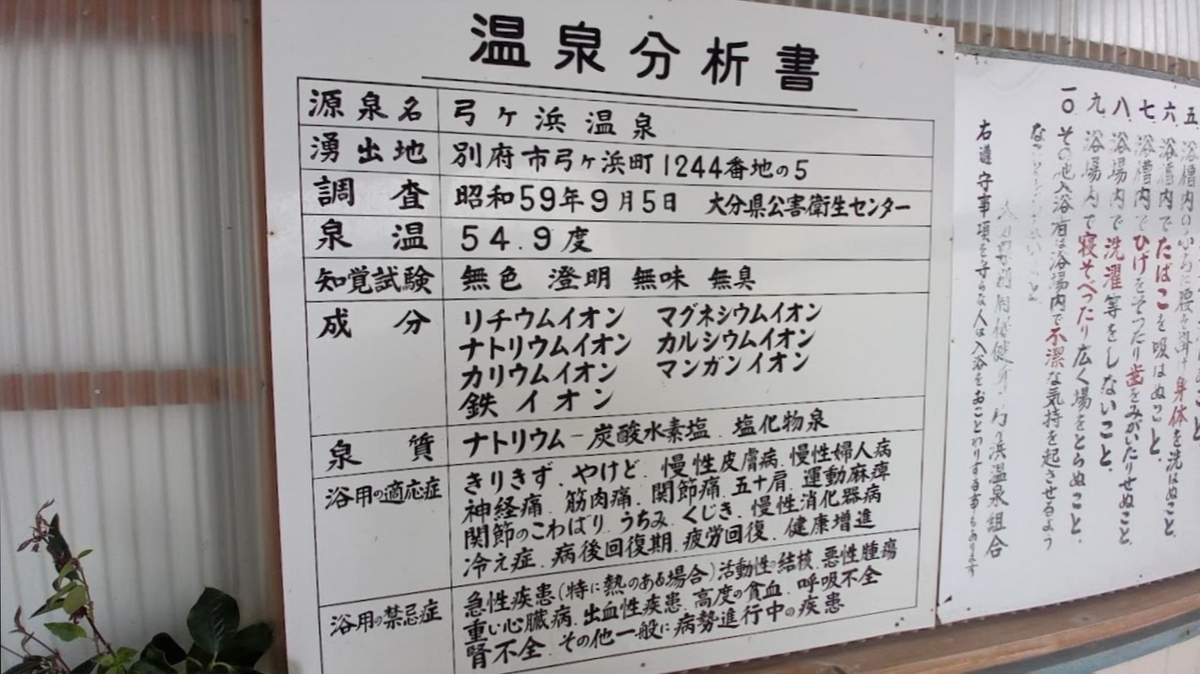 温泉分析書
源泉名 弓ヶ浜温泉
湧出地 別府市弓ヶ浜町1244番地の5
調査 昭和59年9月5日 大分県公害衛生センター
泉温 54.9度
知覚試験 無色 澄明 無味 無臭
成分 リチウムイオン マグネシウムイオン
ナトリウムイオン カルシウムイオン
カリウムイオン マンガンイオン
鉄イオン
泉質 ナトリウム-炭酸水素塩.塩化物泉
浴用の適応症 きりきず.やけど.慢性皮膚病.慢性婦人病
神経痛.筋肉痛.関節痛.五十肩.運動麻痺
関節のこわばり.うちみ.くじき.慢性消化器病
冷え症.病後回復期.疲労回復.健康増進
浴用の禁忌症 急性疾患(特に熱のある場合)活動性の結核.悪性腫瘍
重い心臓病.出血性疾患.高度の貧血.呼吸不全
腎不全.その他一般に病勢進行中の疾患
五 浴槽内の 身体を洗はぬこと、
六 浴槽内でたばこを吸はぬこと、
七 浴槽内でひげをそったり歯をみがいたりせぬこと、
八 浴場内で洗濯等をしないこと、
九 浴場内で寝そべったり広く場をとらぬこと、
一〇 その他入浴者は浴場内で不潔な気持を起させるよう
な
浜温泉組合
右遵守事項を守らな人は入浴をおことわりする事もあります